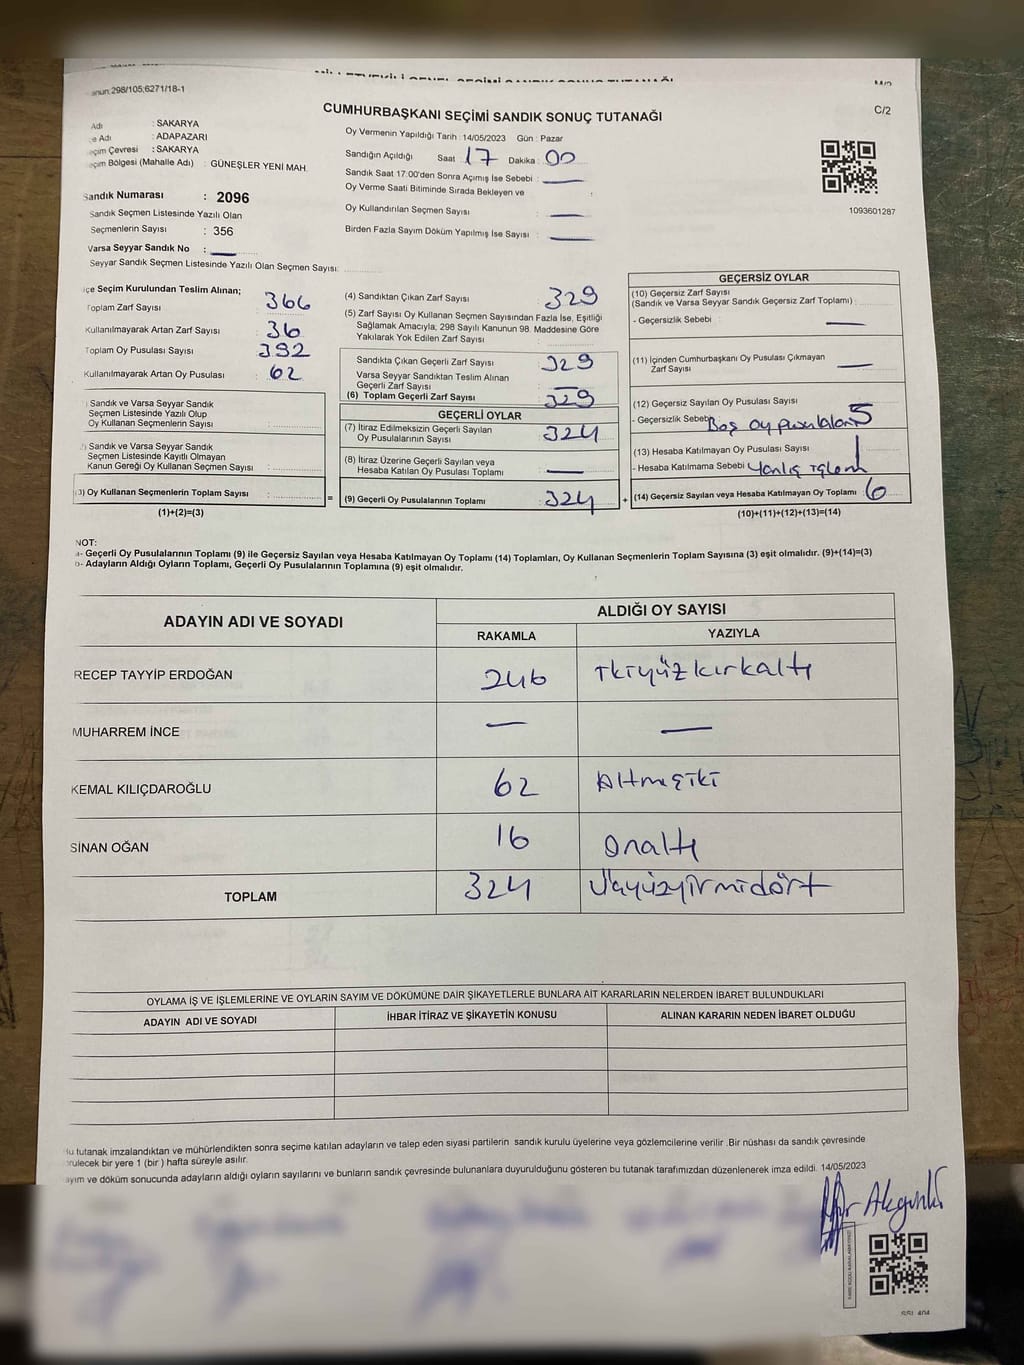 anun:298/105;6271/18-1
CUMHURBAŞKANI SEÇİMİ SANDIK SONUÇ TUTANAĞI
C/2
Adı : SAKARYA
çe Adı : ADAPAZARI
eçim Çevresi : SAKARYA
eçim Bölgesi (Mahalle Adı) : GÜNEŞLER YENİ MAH.
Sandık Numarası : 2096
Sandık Seçmen Listesinde Yazılı Olan
Seçmenlerin Sayısı : 356
Varsa Seyyar Sandık No : —
Seyyar Sandık Seçmen Listesinde Yazılı Olan Seçmen Sayısı:
Oy Vermenin Yapıldığı Tarih : 14/05/2023 Gün : Pazar
Sandığın Açıldığı Saat 17 Dakika : 00
Sandık Saat 17:00'den Sonra Açımış İse Sebebi : —
Oy Verme Saati Bitiminde Sırada Bekleyen ve
Oy Kullandırılan Seçmen Sayısı : —
Birden Fazla Sayım Döküm Yapılmış İse Sayısı : —
1093601287
çe Seçim Kurulundan Teslim Alınan;
Toplam Zarf Sayısı : 366
Kullanılmayarak Artan Zarf Sayısı : 36
Toplam Oy Pusulası Sayısı : 392
Kullanılmayarak Artan Oy Pusulası : 62
) Sandık ve Varsa Seyyar Sandık
Seçmen Listesinde Yazılı Olup
Oy Kullanan Seçmenlerin Sayısı :
) Sandık ve Varsa Seyyar Sandık
Seçmen Listesinde Kayıtlı Olmayan
Kanun Gereği Oy Kullanan Seçmen Sayısı :
3) Oy Kullanan Seçmenlerin Toplam Sayısı : =
(1)+(2)=(3)
(4) Sandıktan Çıkan Zarf Sayısı : 329
(5) Zarf Sayısı Oy Kullanan Seçmen Sayısından Fazla İse, Eşitliği
Sağlamak Amacıyla; 298 Sayılı Kanunun 98. Maddesine Göre
Yakılarak Yok Edilen Zarf Sayısı :
Sandıkta Çıkan Geçerli Zarf Sayısı : 329
Varsa Seyyar Sandıktan Teslim Alınan
Geçerli Zarf Sayısı : —
(6) Toplam Geçerli Zarf Sayısı : 329
GEÇERLİ OYLAR
(7) İtiraz Edilmeksizin Geçerli Sayılan
Oy Pusulalarının Sayısı : 324
(8) İtiraz Üzerine Geçerli Sayılan veya
Hesaba Katılan Oy Pusulası Toplamı : —
(9) Geçerli Oy Pusulalarının Toplamı : 324 +
GEÇERSİZ OYLAR
(10) Geçersiz Zarf Sayısı
(Sandık ve Varsa Seyyar Sandık Geçersiz Zarf Toplamı) :
- Geçersizlik Sebebi : —
(11) İçinden Cumhurbaşkanı Oy Pusulası Çıkmayan
Zarf Sayısı : —
(12) Geçersiz Sayılan Oy Pusulası Sayısı 5
- Geçersizlik Sebebi Boş oy pusulaları
(13) Hesaba Katılmayan Oy Pusulası Sayısı 1
- Hesaba Katılmama Sebebi Yanlış işlem
(14) Geçersiz Sayılan veya Hesaba Katılmayan Oy Toplamı : 6
(10)+(11)+(12)+(13)=(14)
NOT:
a- Geçerli Oy Pusulalarının Toplamı (9) ile Geçersiz Sayılan veya Hesaba Katılmayan Oy Toplamı (14) Toplamları, Oy Kullanan Seçmenlerin Toplam Sayısına (3) eşit olmalıdır. (9)+(14)=(3)
b- Adayların Aldığı Oyların Toplamı, Geçerli Oy Pusulalarının Toplamına (9) eşit olmalıdır.
ADAYIN ADI VE SOYADI ALDIĞI OY SAYISI
RAKAMLA YAZIYLA
RECEP TAYYİP ERDOĞAN 246 İkiyüzkırkaltı
MUHARREM İNCE — —
KEMAL KILIÇDAROĞLU 62 Altmışiki
SİNAN OĞAN 16 Onaltı
TOPLAM 324 Üçyüzyirmidört
OYLAMA İŞ VE İŞLEMLERİNE VE OYLARIN SAYIM VE DÖKÜMÜNE DAİR ŞİKAYETLERLE BUNLARA AİT KARARLARIN NELERDEN İBARET BULUNDUKLARI
ADAYIN ADI VE SOYADI İHBAR İTİRAZ VE ŞİKAYETİN KONUSU ALINAN KARARIN NEDEN İBARET OLDUĞU
Bu tutanak imzalandıktan ve mühürlendikten sonra seçime katılan adayların ve talep eden siyasi partilerin sandık kurulu üyelerine veya gözlemcilerine verilir .Bir nüshası da sandık çevresinde
örülecek bir yere 1 (bir ) hafta süreyle asılır.
ayım ve döküm sonucunda adayların aldığı oyların sayılarını ve bunların sandık çevresinde bulunanlara duyurulduğunu gösteren bu tutanak tarafımızdan düzenlenerek imza edildi. 14/05/2023